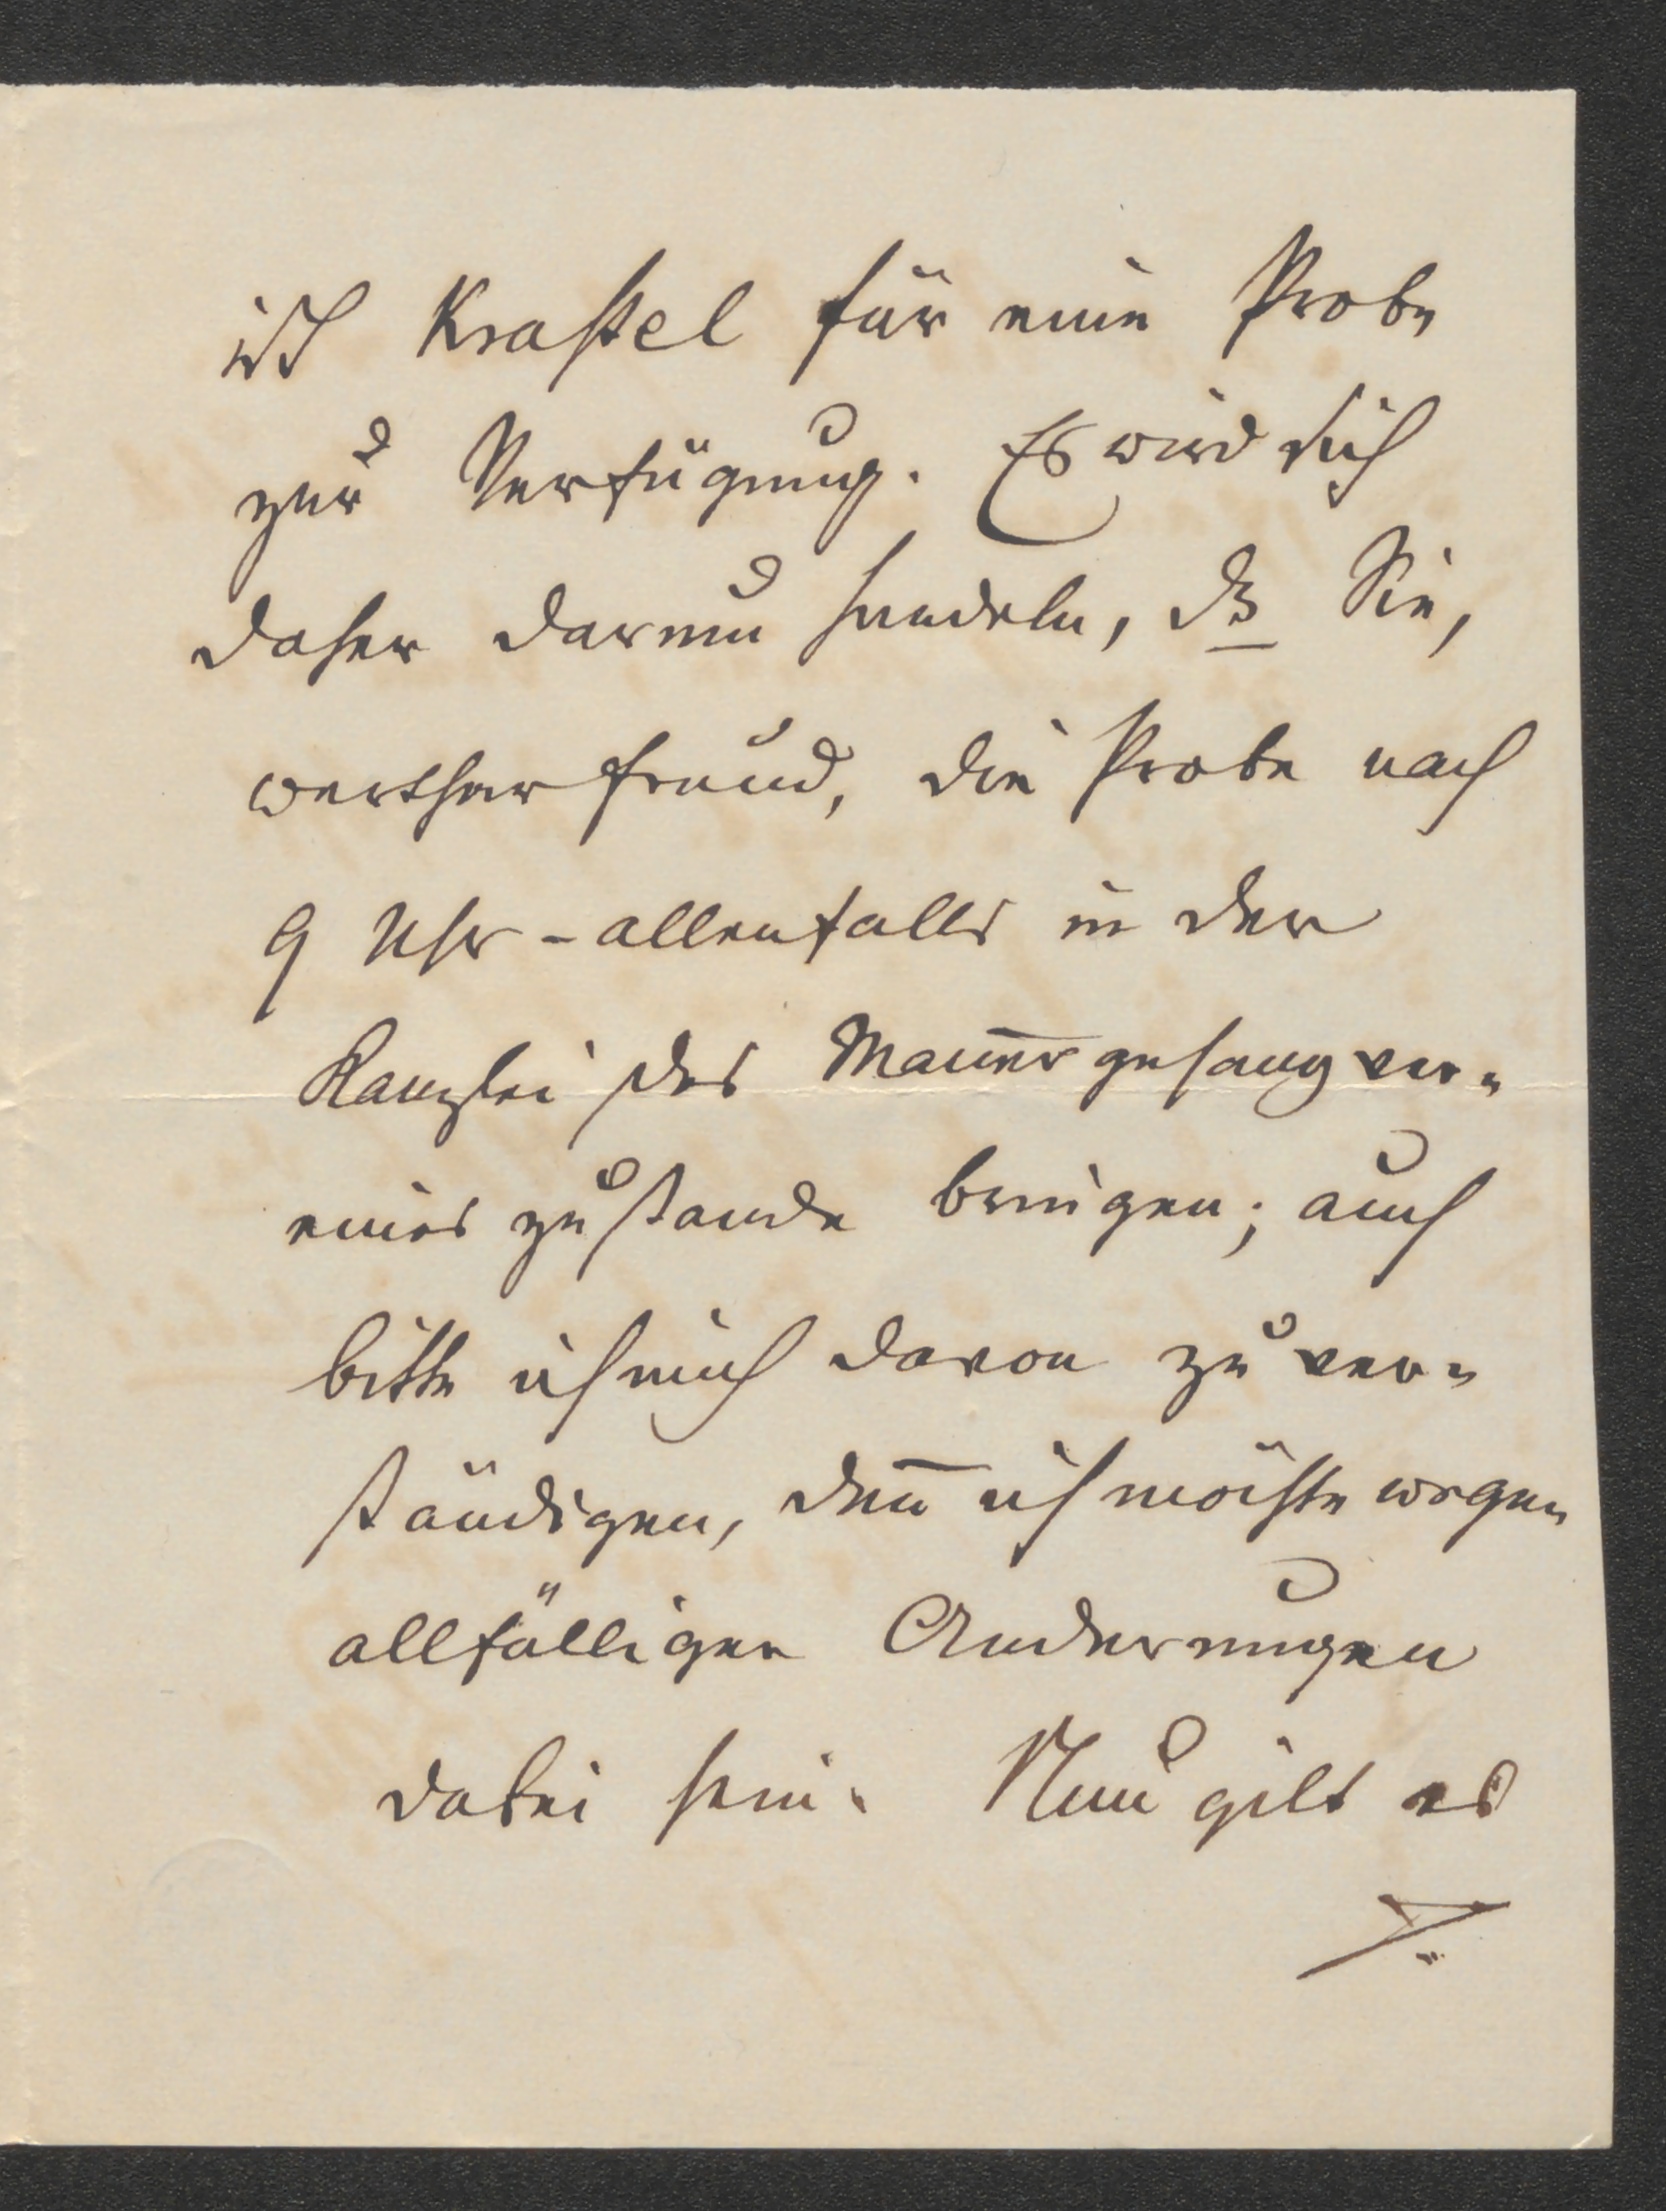 ist Krastel für eine Probe
zur Verfügung. Es wird sich
daher darum handeln, dß Sie,
werther Freund, die Probe nach
9 Uhr – allenfalls in der
Kanzlei des Man̅ergesangver-
eines zustande bringen; auch
bitte ich mich davon zu ver-
ständigen, den̅ ich möchte wegen
allfälliger Anderungen
dabei sein. Nun gilt es